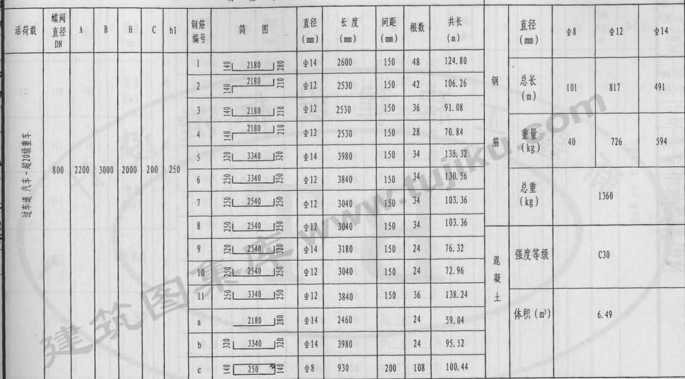 活荷载 螺阀直径DN A B H C h1 钢筋编号 简图 直径(mm) 长度(mm) 间距(mm) 根数 共长(m)
过车道 汽车-超20级重车 800 2200 3000 2000 200 250
1 140 2180 280 Φ14 2600 150 48 124.80
2 140 2180 210 Φ12 2530 150 42 106.26
3 140 2180 210 Φ12 2530 150 36 91.08
4 140 2180 210 Φ12 2530 150 28 70.84
5 320 3340 320 Φ14 3980 150 34 135.32
6 250 3340 250 Φ12 3840 150 34 130.56
7 250 2540 250 Φ12 3040 150 34 103.36
8 250 2540 250 Φ12 3040 150 34 103.36
9 320 2540 320 Φ14 3180 150 24 76.32
10 250 2540 250 Φ12 3040 150 24 72.96
11 250 3340 250 Φ12 3840 150 36 138.24
a 2180 280 Φ14 2460 24 59.04
b 320 3340 320 Φ14 3980 24 95.52
c 140 250 140 Φ8 930 200 108 100.44
钢筋
直径(mm) Φ8 Φ12 Φ14
总长(m) 101 817 491
重量(kg) 40 726 594
总重(kg) 1360
混凝土
强度等级 C30
体积(m³) 6.49
建筑图集库 www.tujiku.com